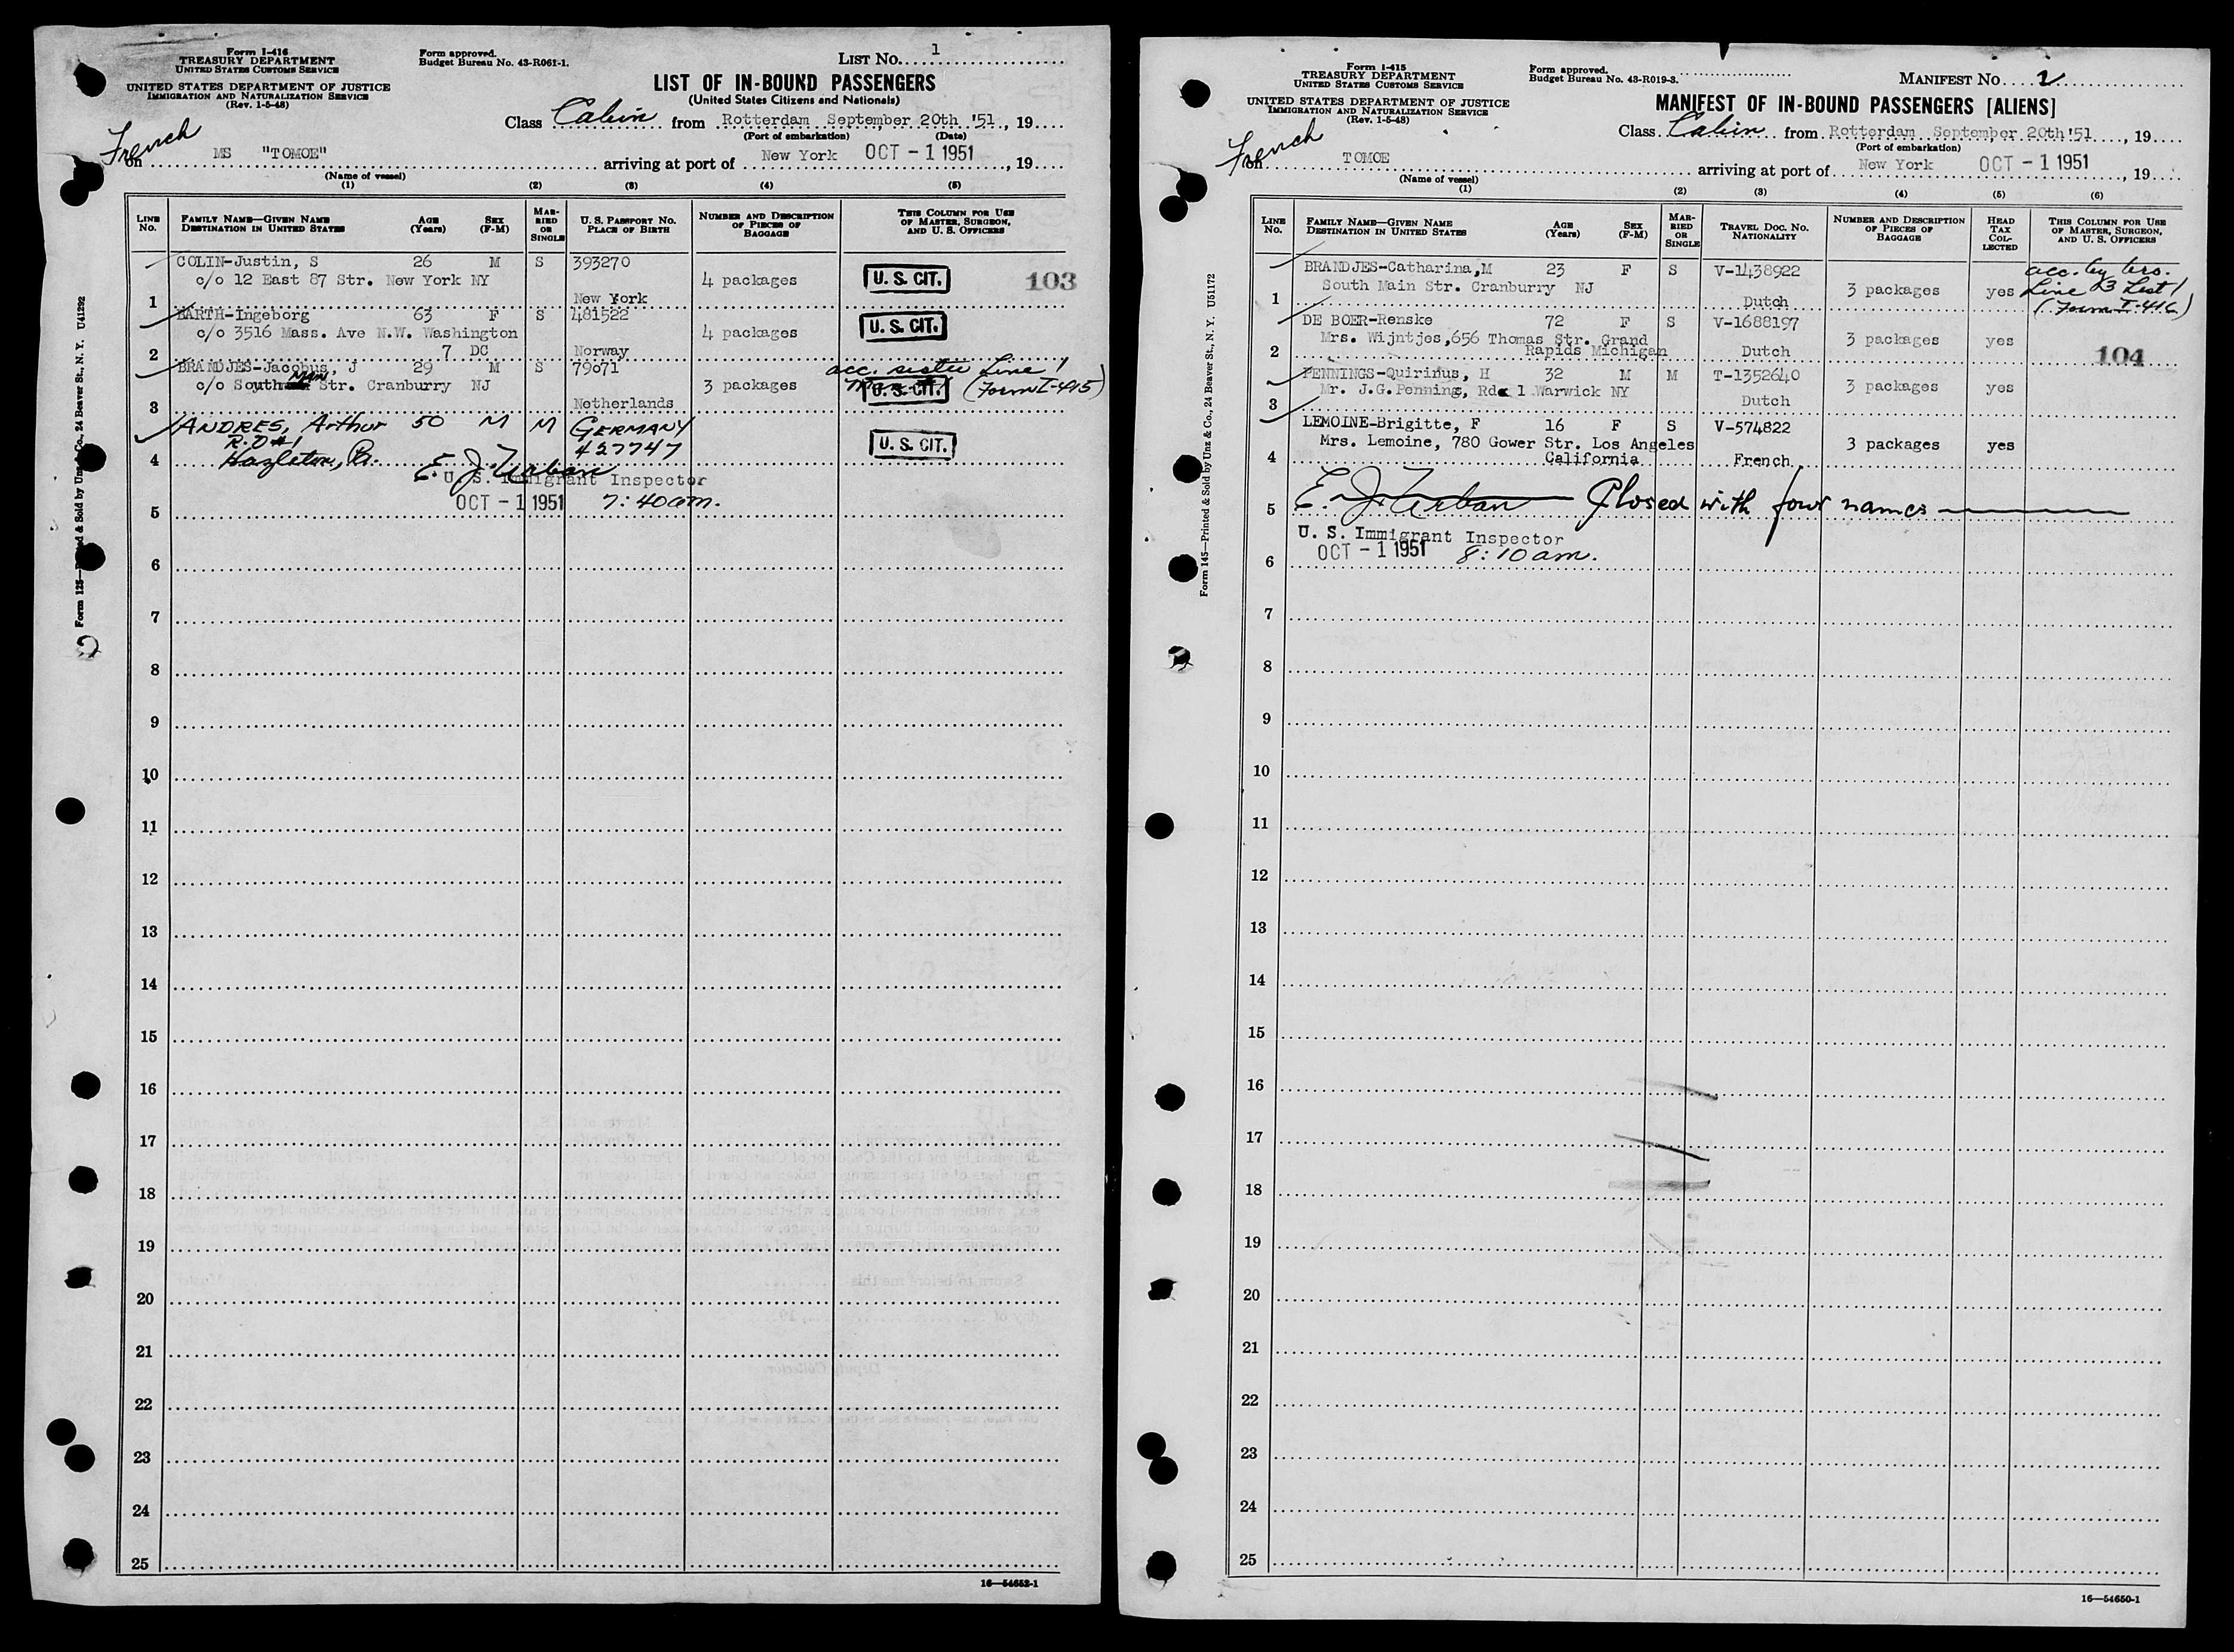 Form I-416
TREASURY DEPARTMENT
UNITED STATES CUSTOMS SERVICE
UNITED STATES DEPARTMENT OF JUSTICE
IMMIGRATION AND NATURALIZATION SERVICE
(Rev. 1-5-48)
Form approved.
Budget Bureau No. 43-R061-1.
LIST No. 1
LIST OF IN-BOUND PASSENGERS
(United States Citizens and Nationals)
Class Cabin from Rotterdam September 20th '51, 19
(Port of embarkation) (Date)
French
on MS "TOMOE" arriving at port of New York OCT - 1 1951, 19
(Name of vessel)
(1) (2) (3) (4) (5)
LINE No. FAMILY NAME—GIVEN NAME DESTINATION IN UNITED STATES AGE (Years) SEX (F-M) MARRIED OR SINGLE U. S. PASSPORT No. PLACE OF BIRTH NUMBER AND DESCRIPTION OF PIECES OF BAGGAGE THIS COLUMN FOR USE OF MASTER, SURGEON, AND U. S. OFFICERS
COLIN-Justin, S 26 M S 393270
c/o 12 East 87 Str. New York NY 4 packages U. S. CIT. 103
1 New York
BARTH-Ingeborg 63 F S 481522
c/o 3516 Mass. Ave N.W. Washington 4 packages U. S. CIT.
2 7 DC Norway
BRANDJES-Jacobus, J 29 M S 79071 acc. sister Line 1
c/o South MAIN Str. Cranburry NJ 3 packages U. S. CIT. (Form I-415)
3 Netherlands
ANDRES, Arthur 50 M M GERMANY
R.D #1 427747 U. S. CIT.
4 Hazleton, Pa.
E. J. Urban
U. S. Immigrant Inspector
5 OCT - 1 1951 7:40 am.
6
7
8
9
10
11
12
13
14
15
16
17
18
19
20
21
22
23
24
25
16—54652-1
Form 125—Printed & Sold by Unz & Co., 24 Beaver St., N. Y. U41292
Form I-415
TREASURY DEPARTMENT
UNITED STATES CUSTOMS SERVICE
UNITED STATES DEPARTMENT OF JUSTICE
IMMIGRATION AND NATURALIZATION SERVICE
(Rev. 1-5-48)
Form approved.
Budget Bureau No. 43-R019-3.
MANIFEST No. 2
MANIFEST OF IN-BOUND PASSENGERS [ALIENS]
Class Cabin from Rotterdam September 20th '51, 19
(Port of embarkation)
French
on TOMOE arriving at port of New York OCT - 1 1951, 19
(Name of vessel)
(1) (2) (3) (4) (5) (6)
LINE No. FAMILY NAME—GIVEN NAME DESTINATION IN UNITED STATES AGE (Years) SEX (F-M) MARRIED OR SINGLE TRAVEL DOC. No. NATIONALITY NUMBER AND DESCRIPTION OF PIECES OF BAGGAGE HEAD TAX COLLECTED THIS COLUMN FOR USE OF MASTER, SURGEON, AND U. S. OFFICERS
BRANDJES-Catharina,M 23 F S V-1438922 acc. by bro.
South Main Str. Cranburry NJ 3 packages yes Line 3 List 1
1 Dutch (Form I-416)
DE BOER-Renske 72 F S V-1688197
Mrs. Wijntjes,656 Thomas Str. Grand 3 packages yes
2 Rapids Michigan Dutch 104
PENNINGS-Quirinus, H 32 M M T-1352640
Mr. J.G.Penning, Rd 1 Warwick NY 3 packages yes
3 Dutch
LEMOINE-Brigitte, F 16 F S V-574822
Mrs. Lemoine, 780 Gower Str. Los Angeles 3 packages yes
4 California French
5 E. J. Urban Closed with four names
U. S. Immigrant Inspector
6 OCT - 1 1951 8:10 am.
7
8
9
10
11
12
13
14
15
16
17
18
19
20
21
22
23
24
25
16—54650-1
Form 145—Printed & Sold by Unz & Co., 24 Beaver St., N. Y. U51172